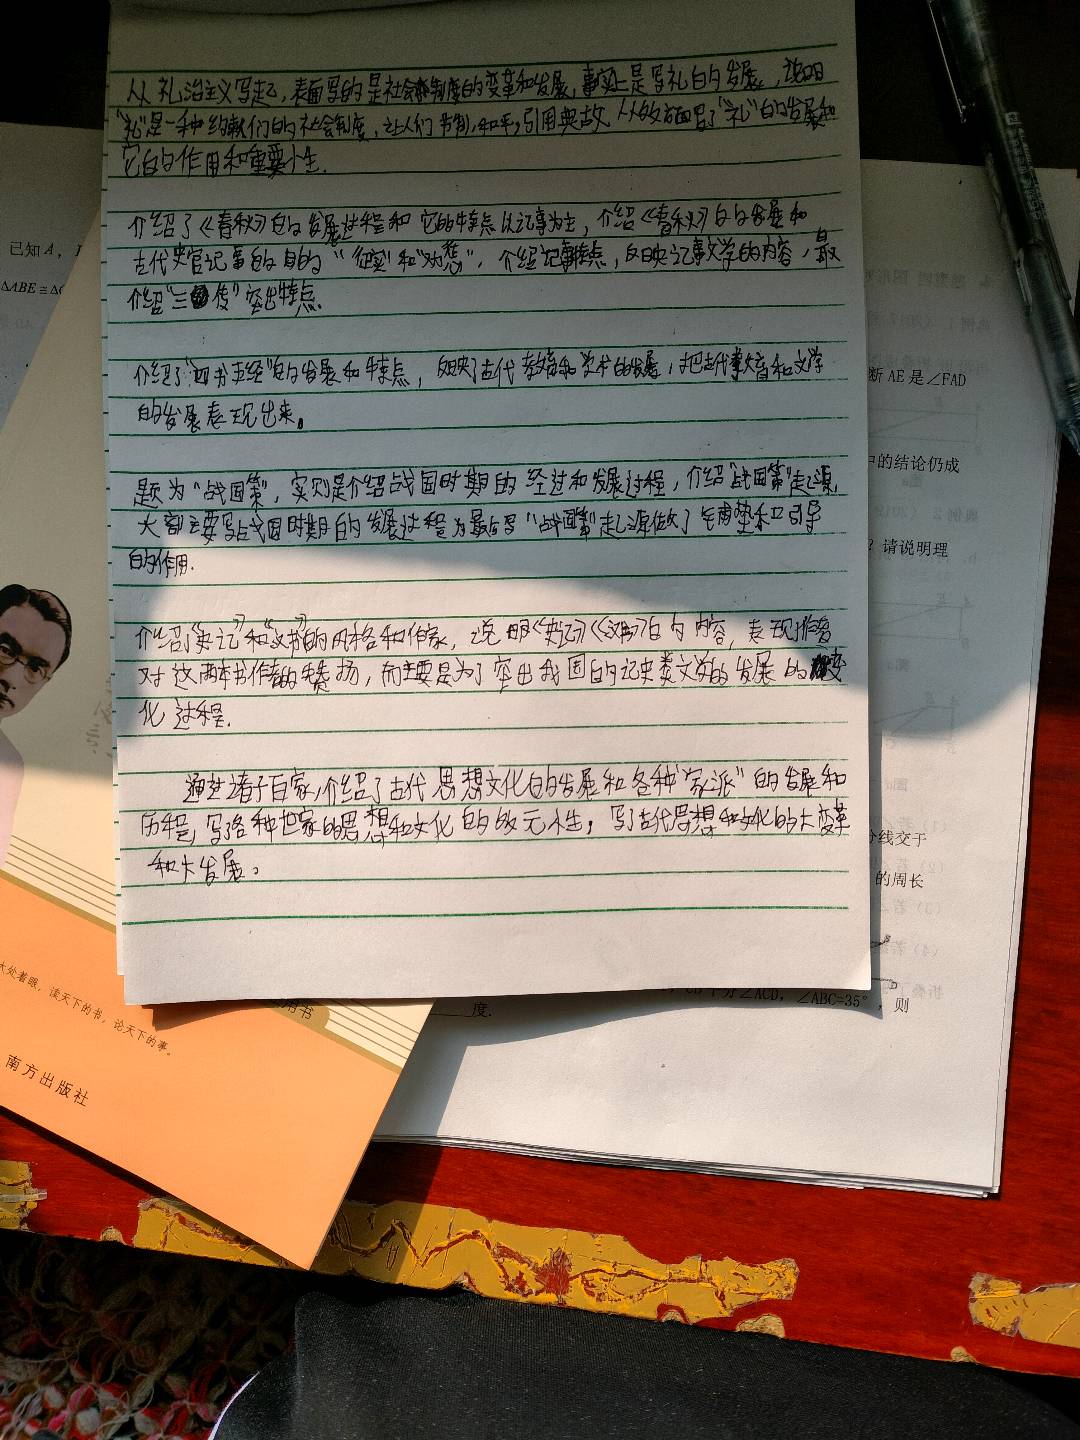 从礼治主义写起，表面写的是社会制度的变革和发展，事实上是写礼的发展，说明
"礼"是一种约束人们的社会制度，让人们节制，和平，引用典故，从各方面写了"礼"的发展和
它的作用和重要性.
介绍了《春秋》的发展过程和它的特点以记事为主，介绍《春秋》的发展和
古代史官记事的目的"征实"和"劝惩"，介绍记事特点，反映记事文学的内容，最
介绍"三传"突出特点.
介绍了"四书五经"的发展和特点，反映了古代教育和学术的发展，把古代教育和文学
的发展表现出来。
题为"战国策"，实则是介绍战国时期的经过和发展过程，介绍"战国策"起源，
大部主要写战国时期的发展过程为最后写"战国策"起源做了铺垫和引导
的作用.
介绍了"史记"和"汉书"的风格和作家，说明《史记》《汉书》的内容，表现作者
对这两本书作者的赞扬，而主要是为了突出我国的记史类文学的发展的变
化过程.
通过诸子百家，介绍了古代思想文化的发展和各种"家派"的发展和
历程，写各种世家的思想和文化的多元性，写古代思想和文化的大变革
和大发展。
已知A，
△ABE≌△
断AE是∠FAD
中的结论仍成
？请说明理
分线交于
的周长
平分∠ACD，∠ABC=35°，则
度.
大处着眼，读天下的书，论天下的事。
用书
南方出版社